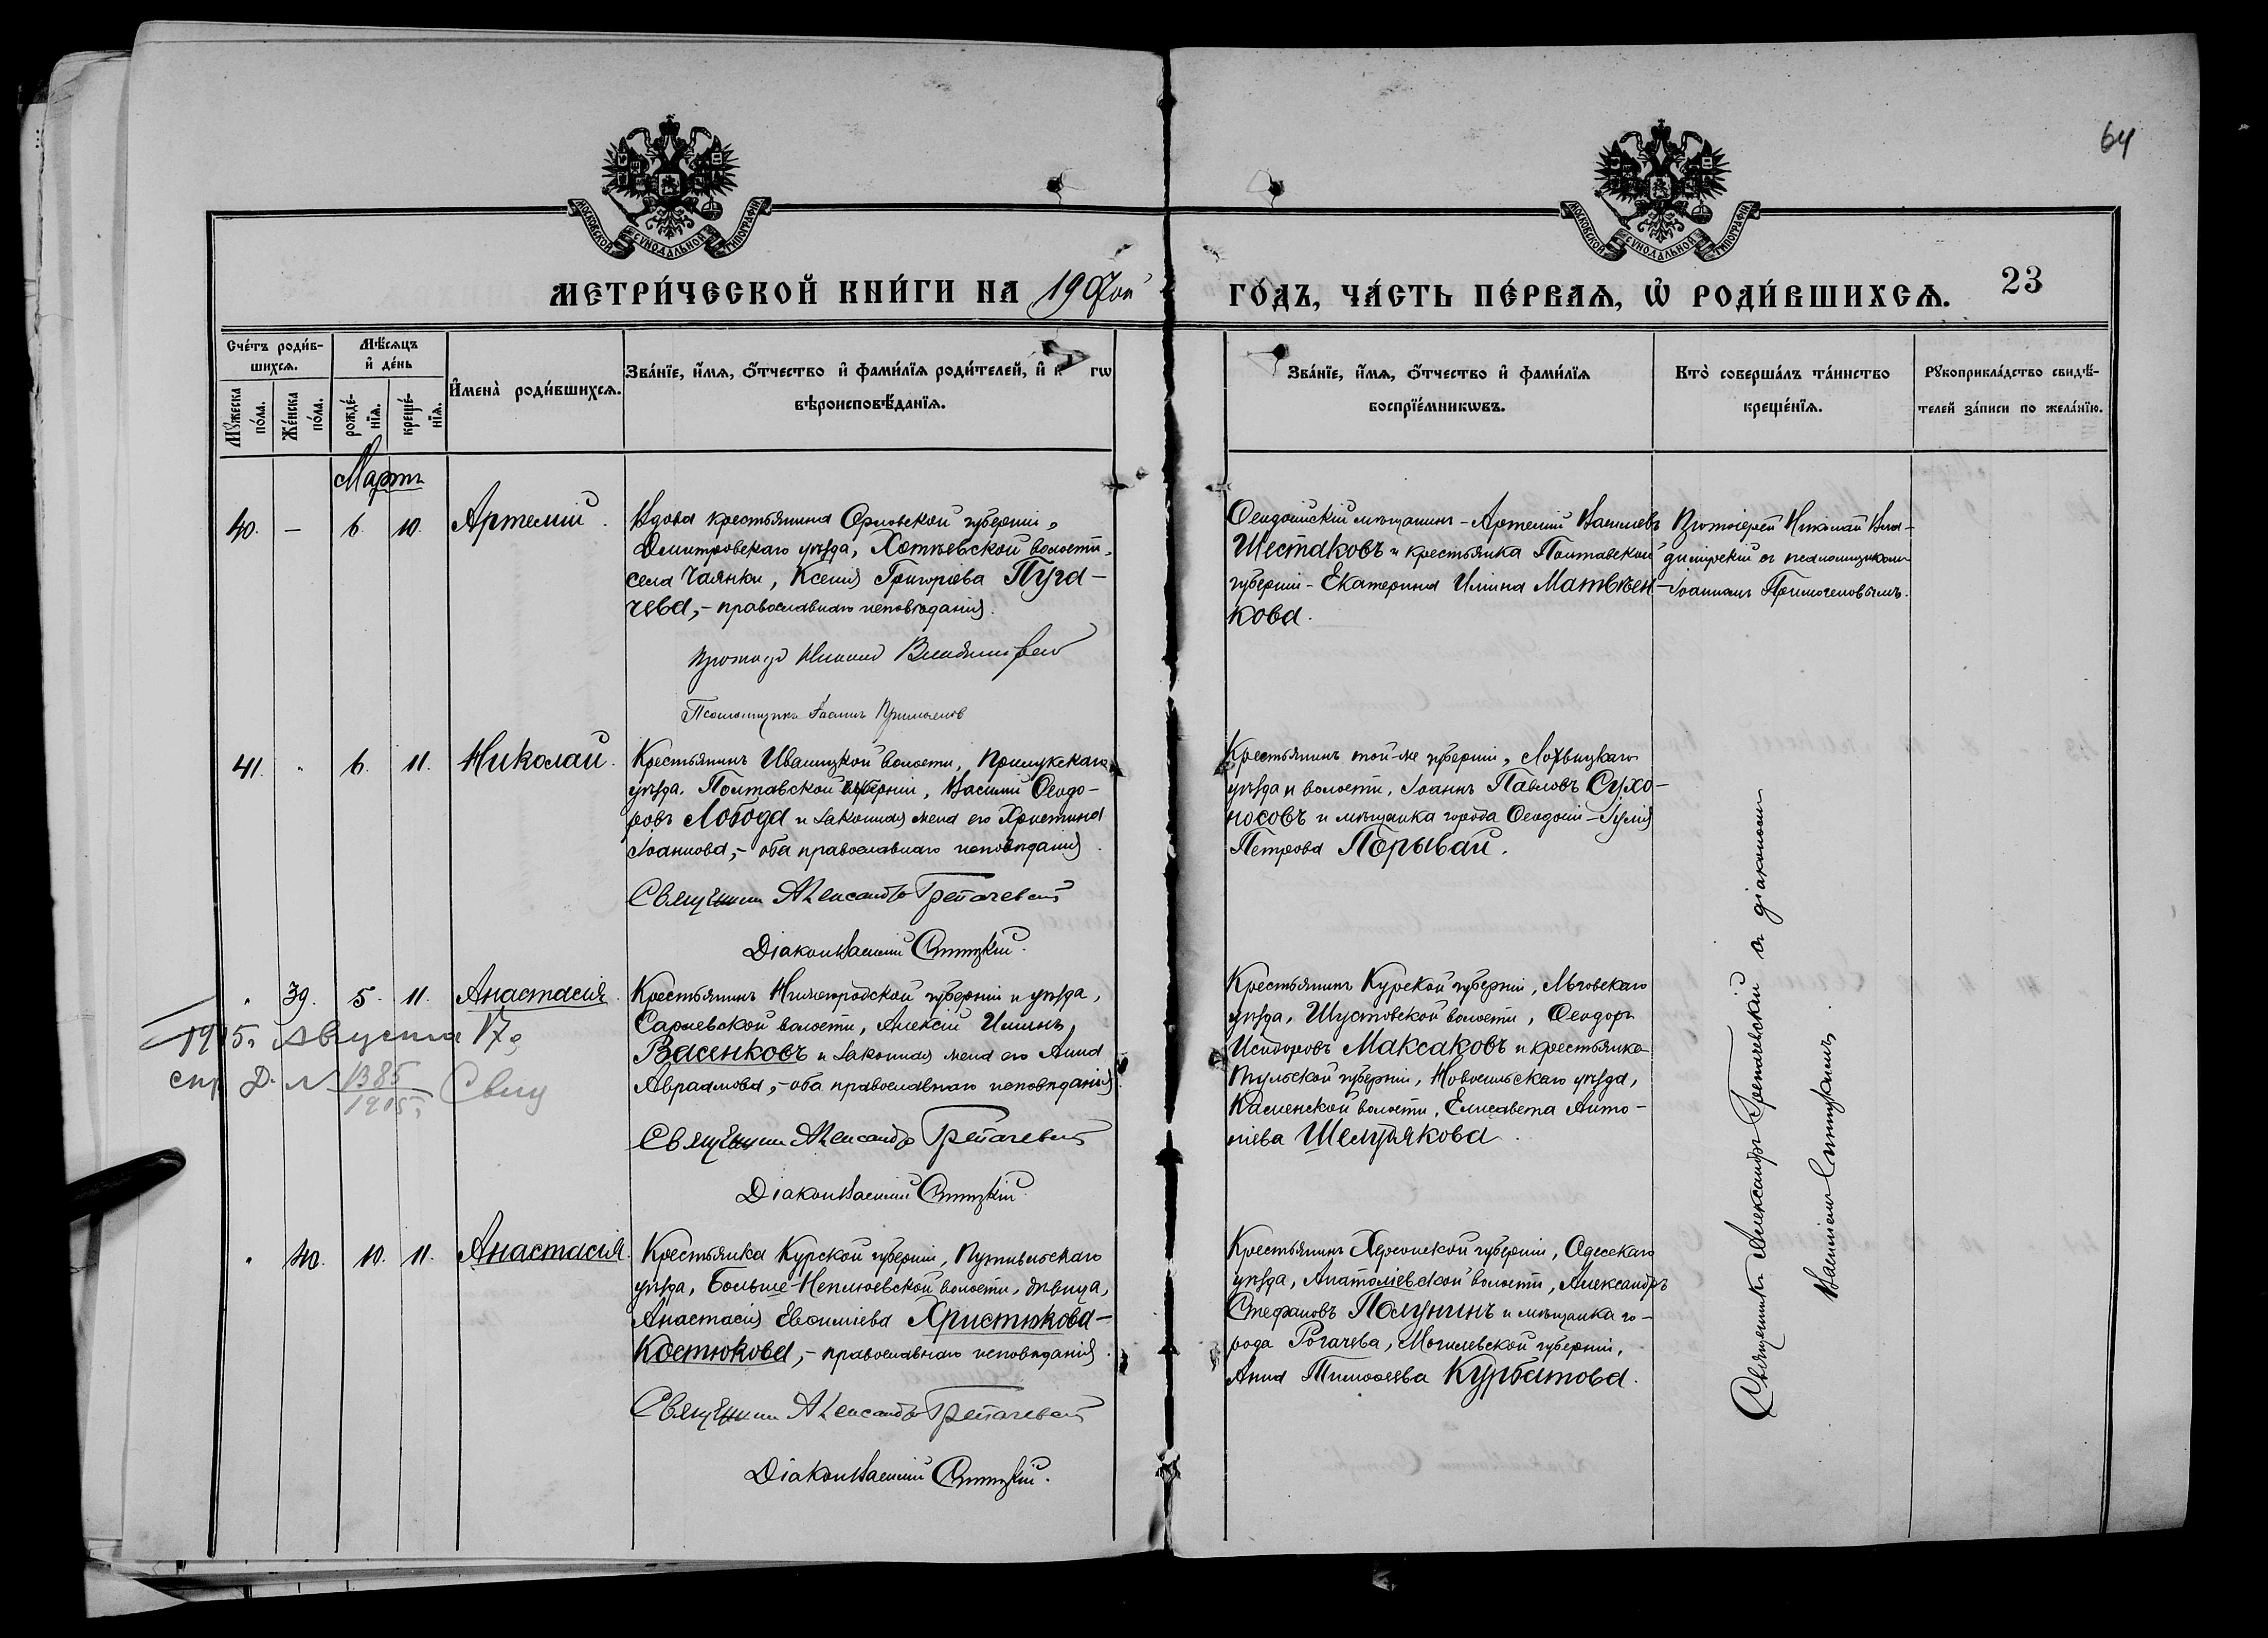 64
МОСКОВСКОЙ СѴНОДАЛЬНОЙ ТИПОГРАФІИ
МОСКОВСКОЙ СѴНОДАЛЬНОЙ ТИПОГРАФІИ
МЕТРИ́ЧЕСКОЙ КНИ́ГИ НА 190
ГО́ДЪ, ЧА́СТЬ ПЕ́РВАѦ, Ѡ РОДИ́ВШИХСѦ. 23
Сче́тъ роди́в-
шихсѧ.
Мѣ́сѧцъ
и҆ де́нь
Мꙋ́жеска
по́ла.
Же́нска
по́ла.
рожде́-
нїѧ.
креще́-
нїѧ.
И҆мена̀ роди́вшихсѧ.
Зва́нїе, и҆́мѧ, ѻ҆́тчество и҆ фами́лїѧ роди́телей, и҆ к гѡ
вѣроисповѣ́данїѧ.
Зва́нїе, и҆́мѧ, ѻ҆́тчество и҆ фами́лїѧ
воспрїе́мникѡвъ.
Кто̀ соверша́лъ та́инство
креще́нїѧ.
Рꙋкоприкла́дство свидѣ́-
телей за́писи по жела́нїю.
Мартъ
40. — 6. 10. Артемій.
Вдова крестьянина Орловской губерніи,
Дмитровскаго уѣзда, Хотѣевской волости,
села Чаянки, Ксенія Григоріева Пуга-
чева, – православнаго исповѣданія.
Николай
Псаломщикъ Іоаннъ Примогеновъ
Ѳеодосійскій мѣщанинъ – Артемій Васильевъ
Шестаковъ и крестьянка Полтавской
губерніи – Екатерина Ильина Матвѣен-
кова.
Протоіерей Николай Вла-
димірскій съ псаломщикомъ
Іоанномъ Примогеновымъ.
41. " 6. 11. Николай.
Крестьянинъ Иваницкой волости, Прилукскаго
уѣзда, Полтавской губерніи, Василій Ѳеодо-
ровъ Лобода и законная жена его Христина
Іоаннова, – оба православнаго исповѣданія.
Священникъ Александръ
Діаконъ Василій
Крестьянинъ той-же губерніи, Лохвицкаго
уѣзда и волости, Іоаннъ Павловъ Сухо-
носовъ и мѣщанка города Ѳеодосіи – Іулія
Петрова Порывай.
" 39. 5. 11. Анастасія.
Крестьянинъ Нижегородской губерніи и уѣзда,
волости, Алексій Ильинъ
Васенковъ и законная жена его Анна
Авраамова, – оба православнаго исповѣданія.
Священникъ Александръ
Діаконъ Василій
1915. Августа 17.
Д. № 1385
1915
Крестьянинъ Курской губерніи, Льговскаго
уѣзда, Шустовской волости, Ѳеодоръ
Исидоровъ Максаковъ и крестьянка
Тульской губерніи, Новосильскаго уѣзда,
Каменской волости, Елисавета Анто-
ніева Шелупякова.
" 40. 10. 11. Анастасія.
Крестьянка Курской губерніи, Путивльскаго
уѣзда, Больше-Неплюевской волости, дѣвица,
Анастасія Евѳиміева Христюкова-
Костюкова, – православнаго исповѣданія.
Священникъ Александръ
Діаконъ Василій
Крестьянинъ Херсонской губерніи, Одесскаго
уѣзда, Анатоліевской волости, Александръ
Стефановъ Полунинъ и мѣщанка го-
рода Рогачева, Могилевской губерніи,
Анна Тимоѳеева Курбатова.
Священникъ Александръ съ діакономъ
Василіемъ